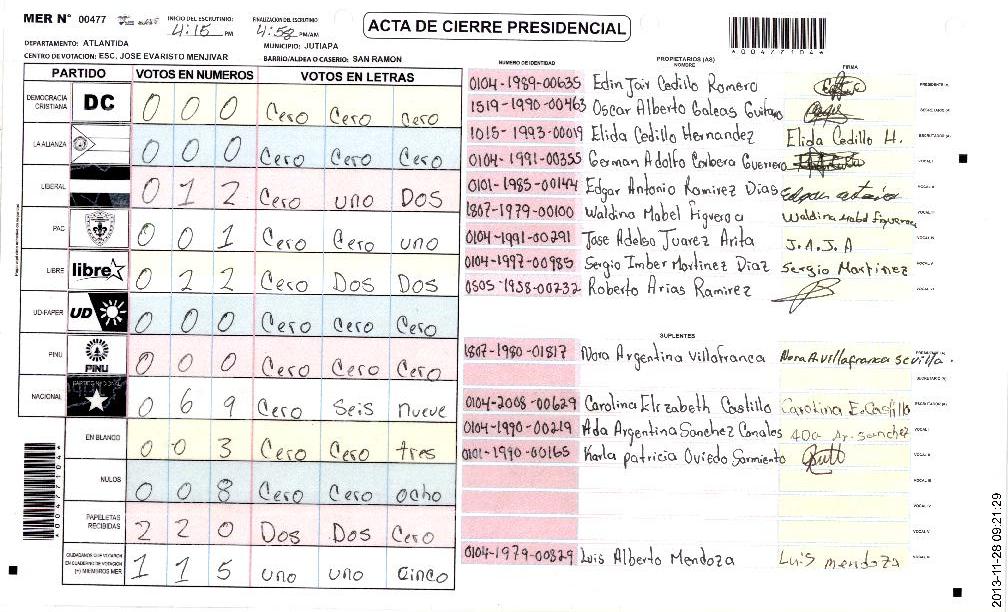 MER N° 00477
INICIO DEL ESCRUTINIO: 4:15 PM
FINALIZACION DEL ESCRUTINIO 4:52 PM/AM
ACTA DE CIERRE PRESIDENCIAL
*00477104*
DEPARTAMENTO: ATLANTIDA
MUNICIPIO: JUTIAPA
CENTRO DE VOTACION: ESC. JOSE EVARISTO MENJIVAR
BARRIO/ALDEA O CASERIO: SAN RAMON
PARTIDO VOTOS EN NUMEROS VOTOS EN LETRAS
DEMOCRACIA CRISTIANA DC 0 0 0 Cero Cero Cero
LA ALIANZA 0 0 0 Cero Cero Cero
LIBERAL 0 1 2 Cero uno Dos
PAC 0 0 1 Cero Cero uno
LIBRE libre 0 2 2 Cero Dos Dos
UD-FAPER UD 0 0 0 Cero Cero Cero
PINU PINU 0 0 0 Cero Cero Cero
NACIONAL PARTIDO NACIONAL 0 6 9 Cero Seis nueve
EN BLANCO 0 0 3 Cero Cero tres
NULOS 0 0 8 Cero Cero ocho
PAPELETAS RECIBIDAS 2 2 0 Dos Dos Cero
CIUDADANOS QUE VOTARON EN CUADERNO DE VOTACION (+) MIEMBROS MER 1 1 5 uno uno Cinco
*00477104*
NUMERO DE IDENTIDAD PROPIETARIOS (AS) NOMBRE FIRMA
0104-1989-00635 Edin Jair Cedillo Romero PRESIDENTE (A)
1519-1990-00463 Oscar Alberto Galeas Guitano SECRETARIO (A)
1015-1993-00019 Elida Cedillo Hernandez Elida Cedillo H. ESCRUTADOR (A)
0104-1991-00355 German Adolfo Corbera Guerrero VOCAL I
0101-1985-00144 Edgar Antonio Ramirez Dias VOCAL II
1807-1979-00100 Waldina Mabel Figueroa Waldina Mabel Figueroa VOCAL III
0104-1991-00291 Jose Adelso Juarez Arita J.A.J.A VOCAL IV
0104-1997-00985 Sergio Imber Martinez Diaz Sergio Martinez VOCAL V
0505-1958-00232 Roberto Arias Ramirez VOCAL VI
SUPLENTES
1807-1980-01817 Nora Argentina Villafranca Nora A villafranca sevilla. PRESIDENTE (A)
SECRETARIO (A)
0104-2008-00629 Carolina Elizabeth Castillo Carolina E. Castillo ESCRUTADOR (A)
0104-1990-00219 Ada Argentina Sanchez Canales Ada Ar. sanchez VOCAL I
0101-1990-00165 Karla Patricia Oviedo Sarmiento VOCAL II
VOCAL III
VOCAL IV
VOCAL V
0104-1979-00829 Luis Alberto Mendoza Luis mendoza VOCAL VI
2013-11-28 09:21:29